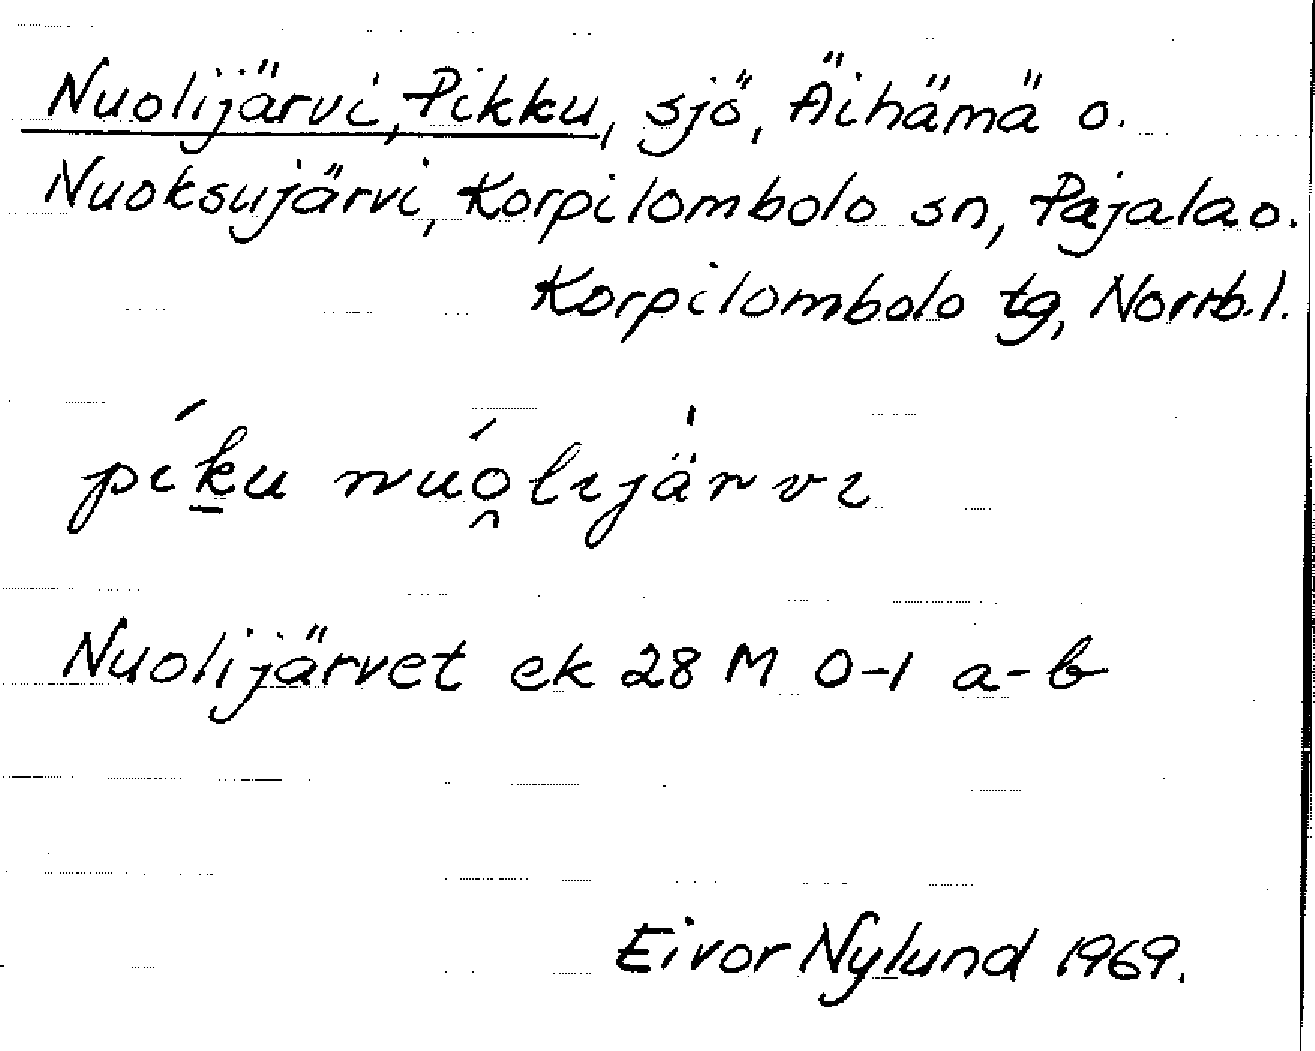 Nuolijärvi, Pikku, sjö, Äihämä o.
Nuoksujärvi, Korpilombolo sn, Pajala o.
Korpilombolo tg, Norrb. l.
píḵu nuó̯lijärvi
Nuolijärvet ek 28 M 0-1 a-b
Eivor Nylund 1969.